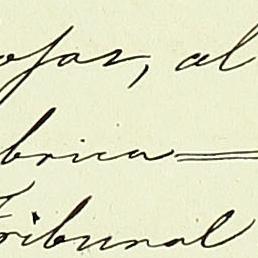 ojas, al
brica=
Tribunal